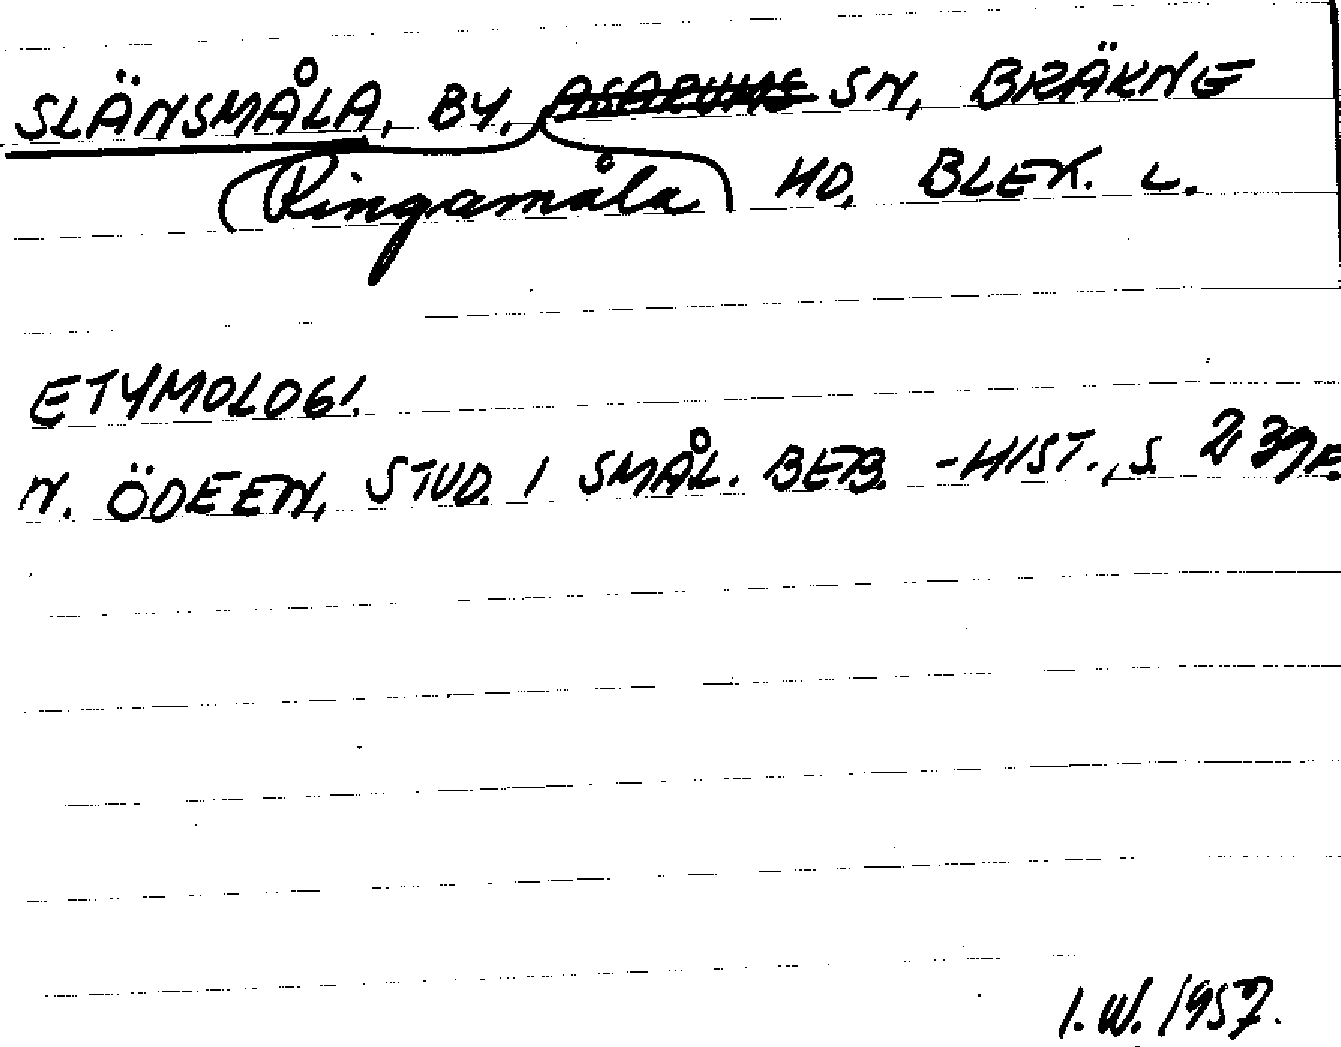 SLÄNSMÅLA, BY. ASARUMS SN, BRÄKNE
Ringamåla HD, BLEK. L.
ETYMOLOGI.
N. ÖDEEN, STUD. I SMÅL. BEB. -HIST., S. 239F.
I.W. 1957.